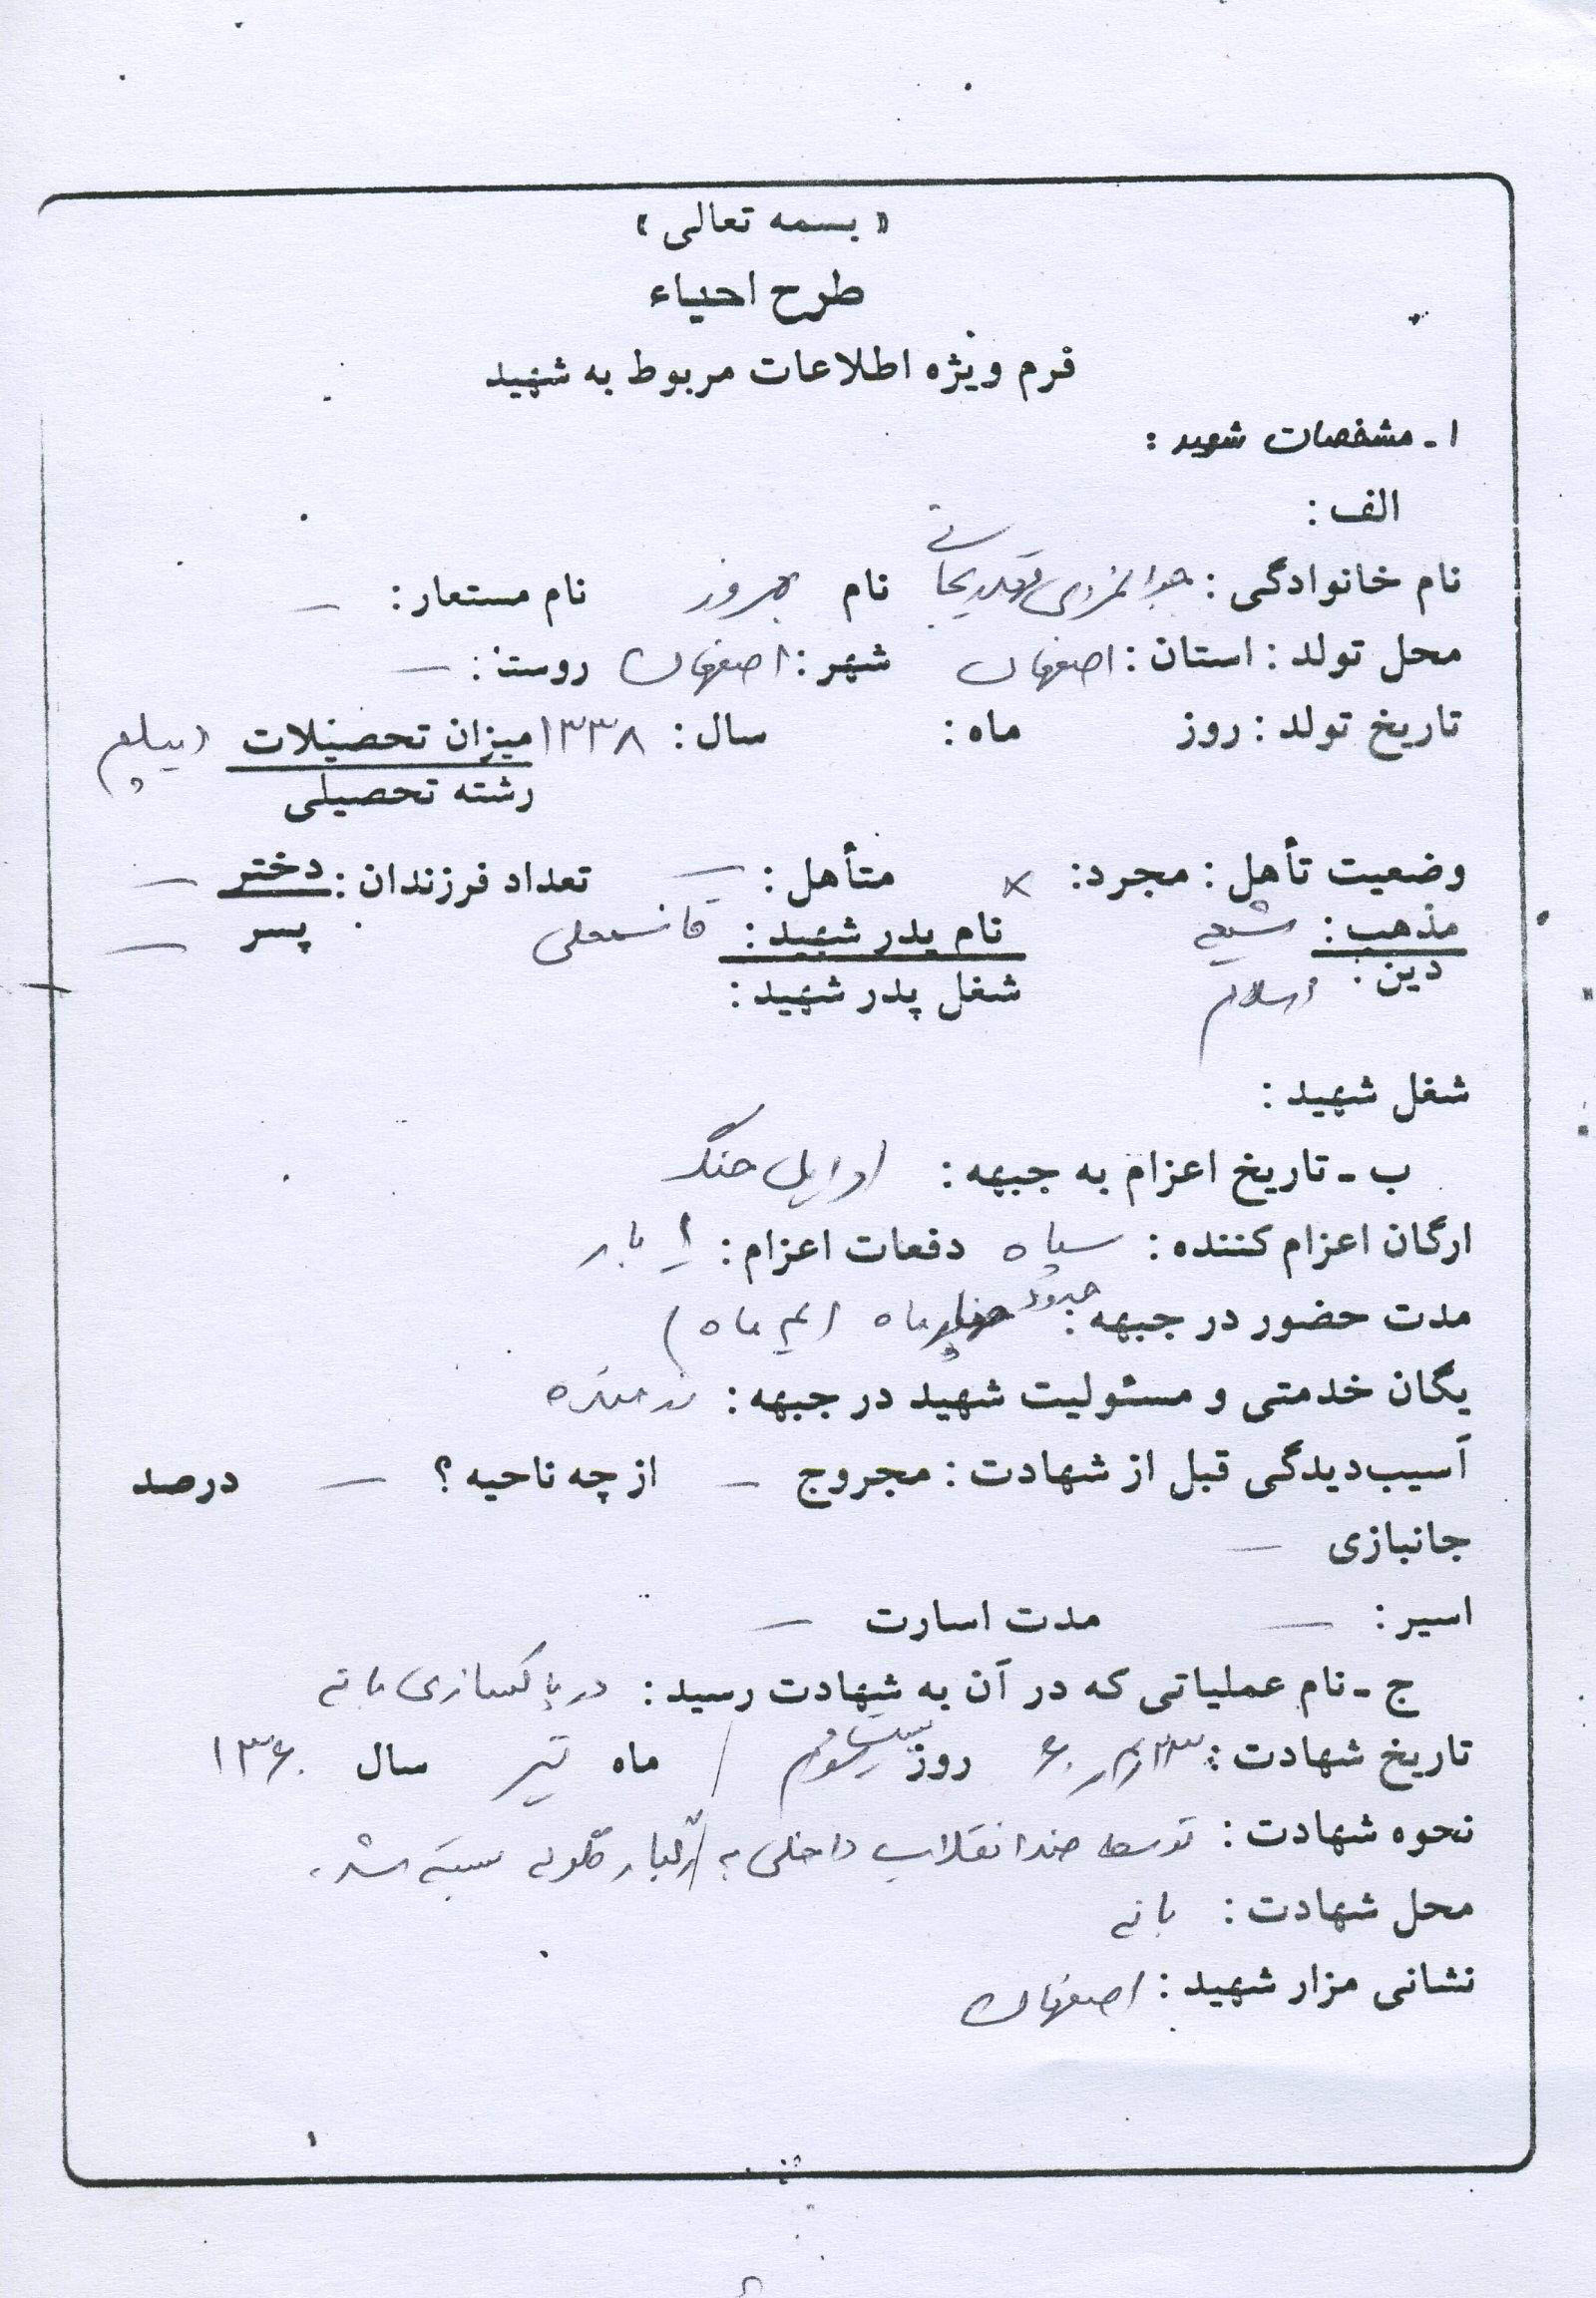 « بسمه تعالی »
طرح احیاء
فرم ویژه اطلاعات مربوط به شهید
۱ - مشخصات شهید :
الف :
نام خانوادگی : جوانمردی نام بهروز نام مستعار : –
محل تولد : استان : اصفهان شهر : اصفهان روستا : –
تاریخ تولد : روز ماه : سال : ۱۳۳۸ میزان تحصیلات دیپلم
رشته تحصیلی
وضعیت تأهل : مجرد : × متأهل : – تعداد فرزندان : دختر –
مذهب : شیعه نام پدر شهید : قاسمعلی پسر –
دین : اسلام شغل پدر شهید :
شغل شهید :
ب - تاریخ اعزام به جبهه : اوایل جنگ
ارگان اعزام کننده : سپاه دفعات اعزام : ۱ بار
مدت حضور در جبهه : حدود چهار ماه (۴ ماه)
یگان خدمتی و مسئولیت شهید در جبهه : رزمنده
آسیب‌دیدگی قبل از شهادت : مجروح – از چه ناحیه ؟ – درصد
جانبازی –
اسیر : – مدت اسارت –
ج - نام عملیاتی که در آن به شهادت رسید : در پاکسازی بانه
تاریخ شهادت : روز ماه تیر سال ۱۳۶۰
نحوه شهادت : توسط ضد انقلاب داخلی به رگبار گلوله بسته شد.
محل شهادت : بانه
نشانی مزار شهید : اصفهان
۱